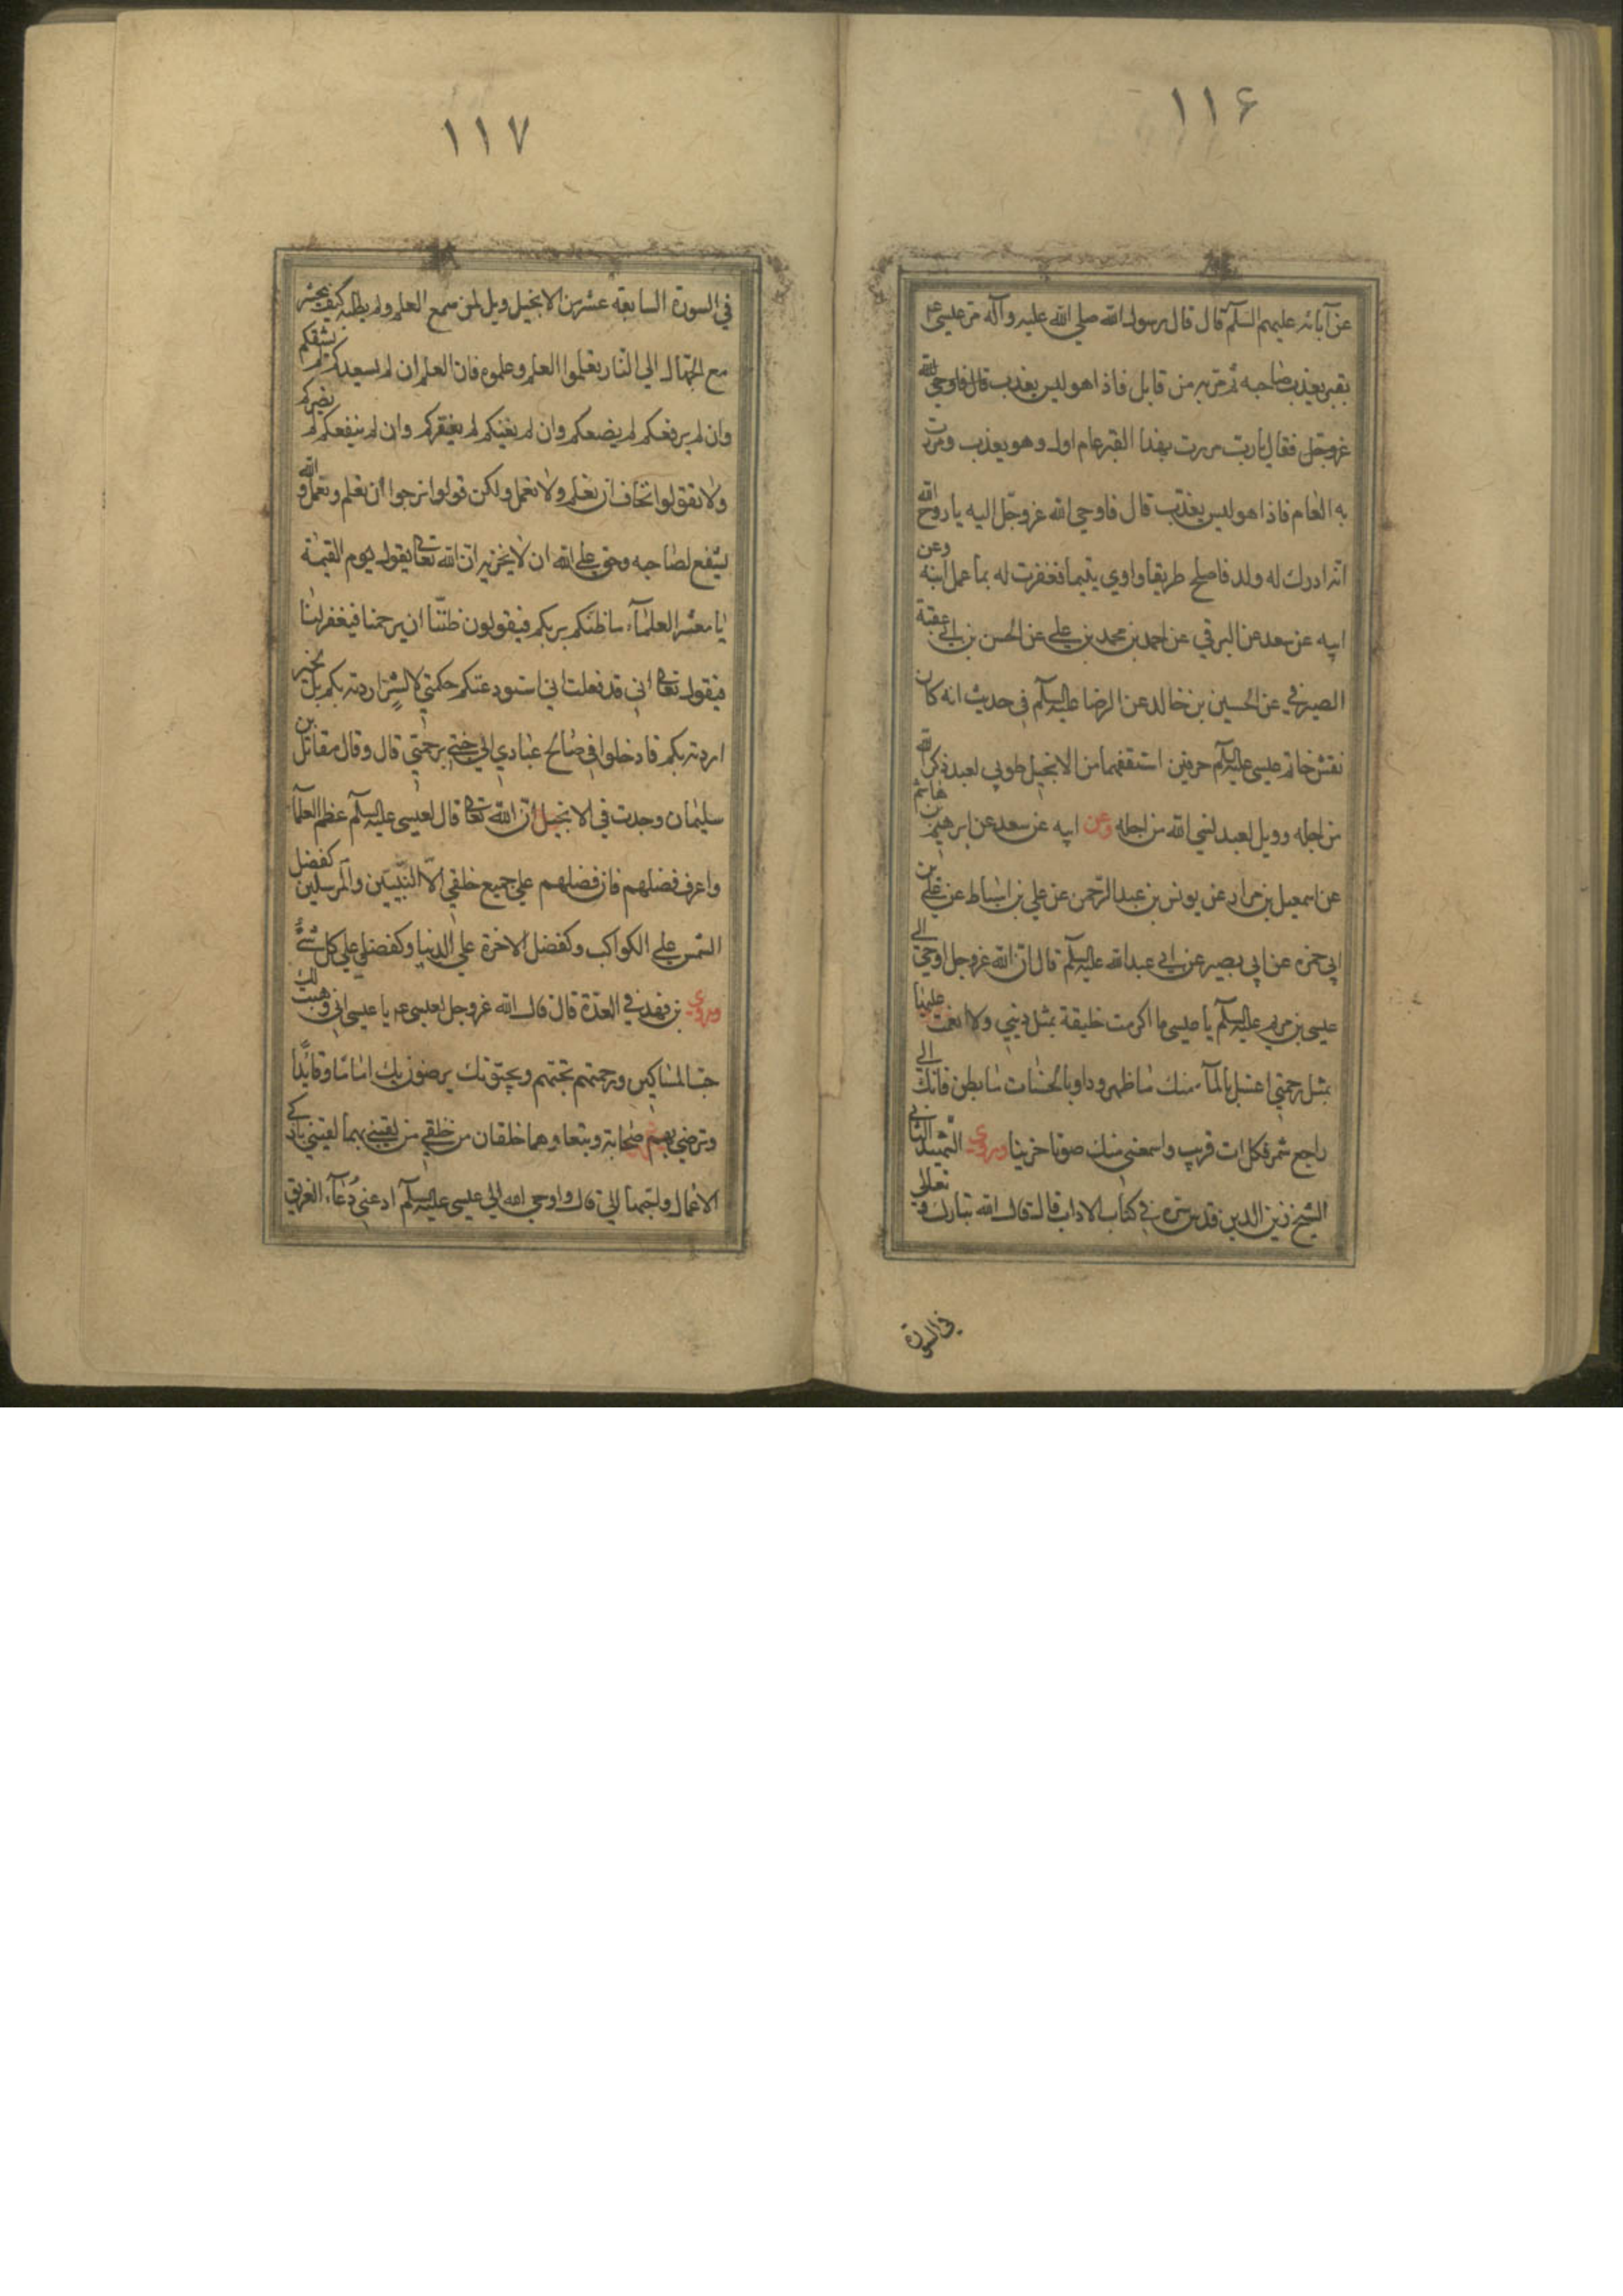 ١١۶
عن آبائه عليهم السلم قال قال رسول الله صلى الله عليه وآله مر عيسى ع
بقبر يعذب صاحبه ثم مر به من قابل فاذا هو ليس يعذب قال فاوحى الله
عز وجل فقال يا رب مررت بهذا القبر عام اول وهو يعذب ومررت
به العام فاذا هو ليس يعذب قال فاوحى الله عز وجل اليه يا روح الله
انه ادرك له ولد فاصلح طريقا واوى يتيما فغفرت له بما عمل ابنه وعن
ابيه عن سعد عن البرقي عن احمد بن محمد بن علي عن الحسن بن ابي عقبة
الصيرفي عن الحسين بن خالد عن الرضا عليه السلم في حديث انه كان
نقش خاتم عيسى عليه السلم حرفين استقفهما من الانجيل طوبى لعبد ذكر الله
من اجله وويل لعبد نسي الله من اجله وعن ابيه عن سعد عن ابرهيم بن هاشم
عن اسمعيل بن مرار عن يونس بن عبد الرحمن عن علي بن اسباط عن علي بن
ابي حمزه عن ابي بصير عن ابي عبد الله عليه السلم قال ان الله عز وجل اوحى الى
عيسى بن مريم عليه السلم يا عيسى ما اكرمت خليقة بمثل ديني ولا انعمت عليها
بمثل رحمتي اغسل بالمآء منك ما ظهر وداو بالحسنات ما بطن فانك الي
راجع شمر فكل ات قريب واسمعني منك صوتا حزينا وروى الشهيد الثاني
الشيخ زين الدين قدس سره في كتاب الاداب قال قال الله تبارك وتعالى
في السورة
١١٧
في السورة السابعة عشر من الانجيل ويل لمن سمع العلم ولم يطلبه كيف يحشر
مع الجهال الى النار تعلموا العلم وعلموه فان العلم ان لم يسعدكم لم يشقكم
وان لم يرفعكم لم يضعكم وان لم يغنكم لم يفقركم وان لم ينفعكم لم يضركم
ولا تقولوا نخاف ان نعلم ولا نعمل ولكن قولوا نرجوا ان نعلم ونعمل والله
ليشفع لصاحبه وحق على الله ان لا يخزيه ان الله تعالى يقول يوم القيمة
يا معشر العلمآء ما ظنكم بربكم فيقولون ظننا ان يرحمنا فيغفر لنا
فيقول تعالى اني قد فعلت اني استودعتكم حكمتي لا لشر اردته بكم بل لخير
اردته بكم فادخلوا في صالح عبادي الى جنتي برحمتي قال وقال مقاتل بن
سليمان وجدت في الانجيل ان الله تعالى قال لعيسى عليه السلم عظم العلمآ
واعرف فضلهم فان فضلهم على جميع خلقي الا النبيين والمرسلين كفضل
الشمس على الكواكب وكفضل الاخرة على الدنيا وكفضلي على كل شئ
وروى بن فهد في العدة قال قال الله عز وجل لعيسى ع يا عيسى اني وهبت لك
حب المساكين ورحمتهم تحبهم ويحبونك يرضون بك اماما وقائدا
وترضى بهم صحابة وتبعا وهما خلقان من خلقي من لقيني بهما لقيني بازكى
الاعمال واحبها الي قال واوحى الله الى عيسى عليه السلم ادعني دعآء الغريق